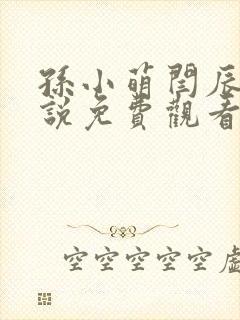 孫小萌閆辰
說免費觀看
空空空空空虛